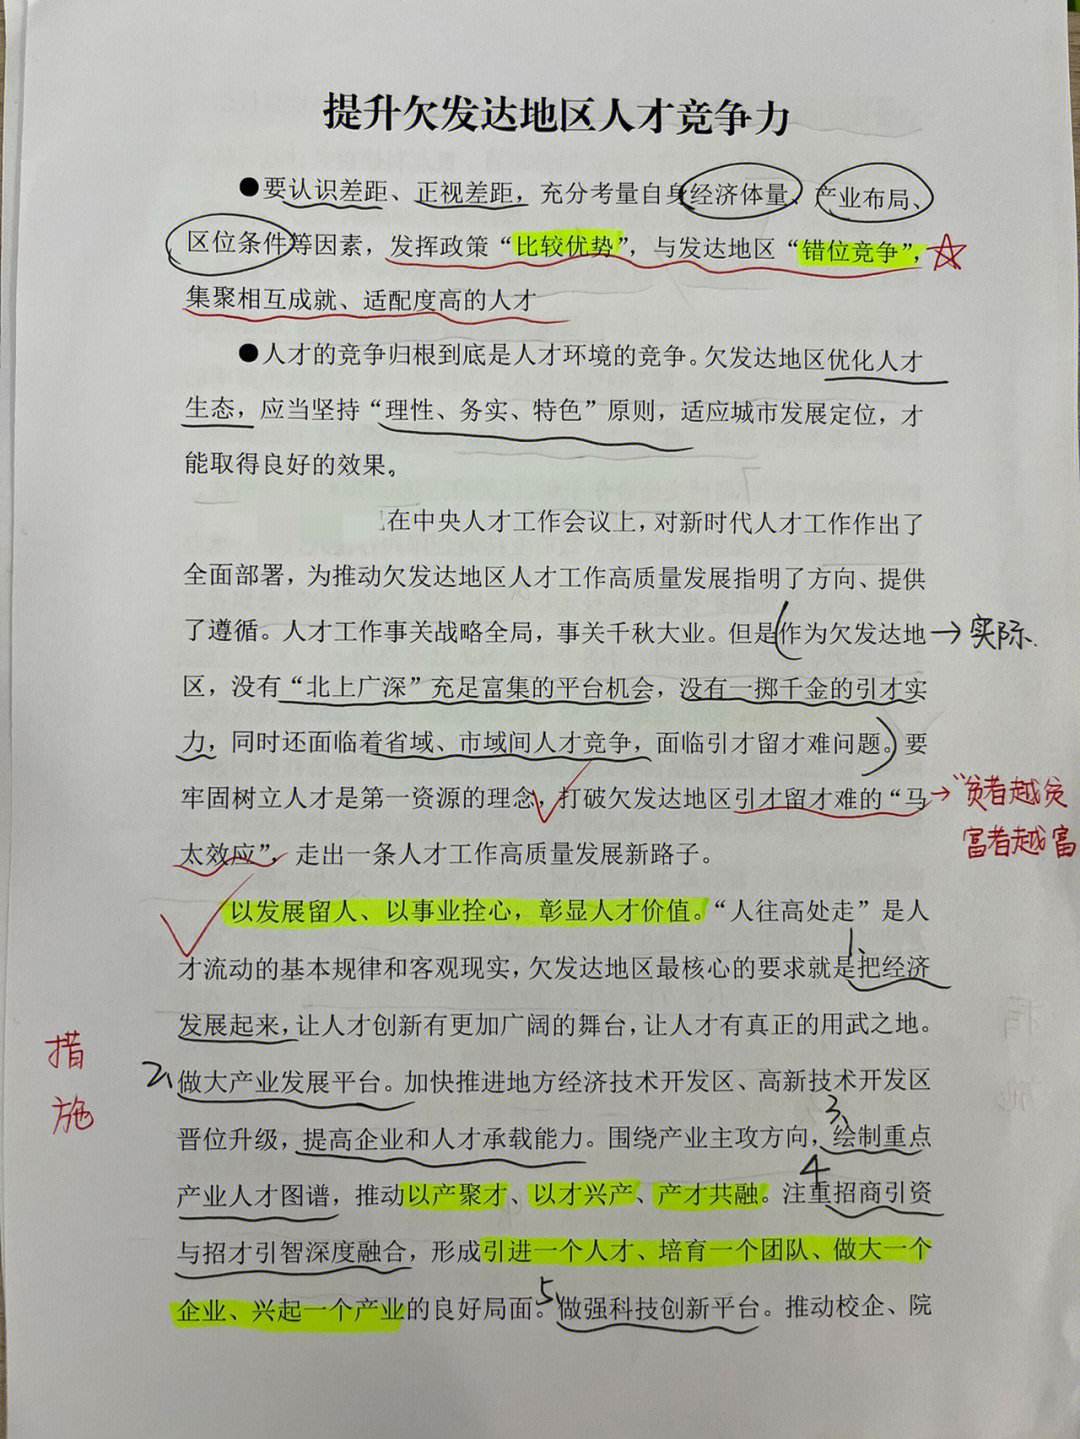 提升欠发达地区人才竞争力
●要认识差距、正视差距，充分考量自身经济体量、产业布局、
区位条件等因素，发挥政策“比较优势”，与发达地区“错位竞争”，
集聚相互成就、适配度高的人才
●人才的竞争归根到底是人才环境的竞争。欠发达地区优化人才
生态，应当坚持“理性、务实、特色”原则，适应城市发展定位，才
能取得良好的效果。
在中央人才工作会议上，对新时代人才工作作出了
全面部署，为推动欠发达地区人才工作高质量发展指明了方向、提供
了遵循。人才工作事关战略全局，事关千秋大业。但是作为欠发达地
→实际.
区，没有“北上广深”充足富集的平台机会，没有一掷千金的引才实
力，同时还面临着省域、市域间人才竞争，面临引才留才难问题。要
牢固树立人才是第一资源的理念，打破欠发达地区引才留才难的“马
→“贫者越贫
富者越富
太效应”，走出一条人才工作高质量发展新路子。
以发展留人、以事业拴心，彰显人才价值。“人往高处走”是人
1、
才流动的基本规律和客观现实，欠发达地区最核心的要求就是把经济
发展起来，让人才创新有更加广阔的舞台，让人才有真正的用武之地。
措
施
2、
做大产业发展平台。加快推进地方经济技术开发区、高新技术开发区
3、
晋位升级，提高企业和人才承载能力。围绕产业主攻方向，绘制重点
4
产业人才图谱，推动以产聚才、以才兴产、产才共融。注重招商引资
与招才引智深度融合，形成引进一个人才、培育一个团队、做大一个
5、
企业、兴起一个产业的良好局面。做强科技创新平台。推动校企、院